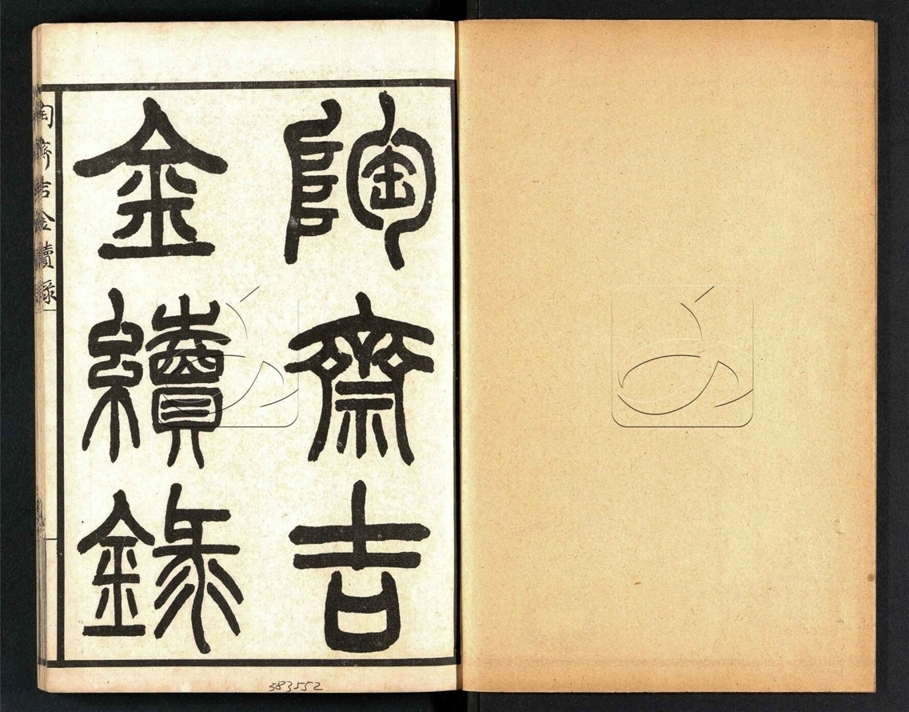 陶齋吉
金續錄
陶齋吉金續錄
583552